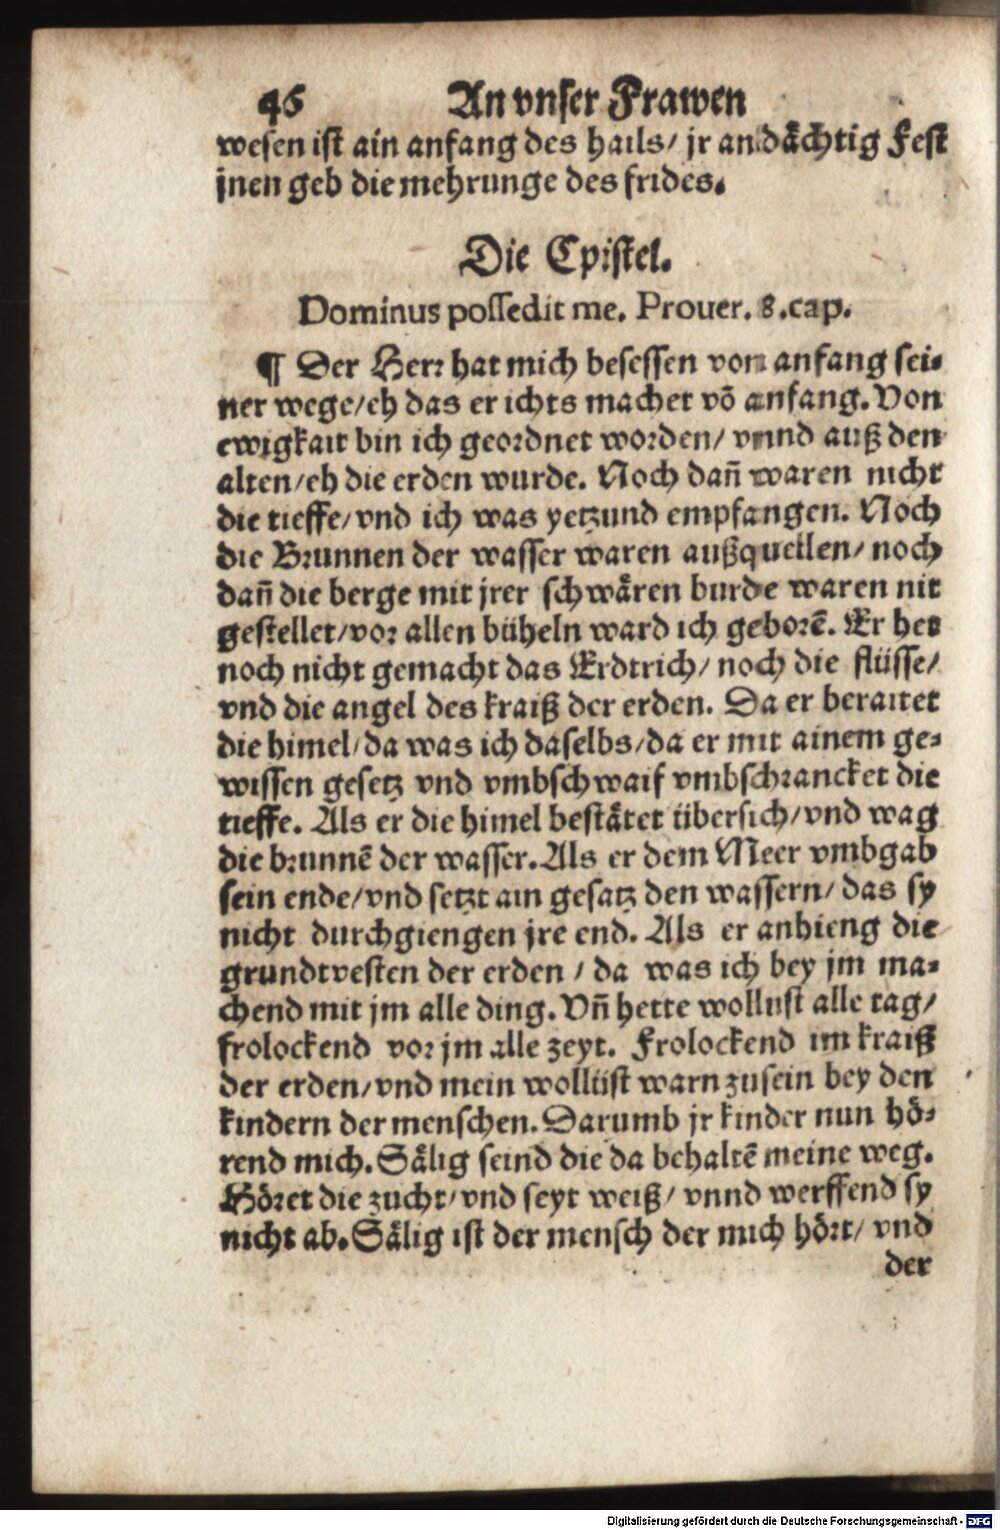 46 An vnser Frawen
wesen ist ain anfang des hails/ jr andåchtig Fest
jnen geb die mehrunge des frides.
Die Epistel.
Dominus possedit me. Prouer. 8. cap.
¶ Der Herr hat mich besessen von anfang sei-
ner wege/eh das er ichts machet võ anfang. Von
ewigkait bin ich geordnet worden/ vnnd auß den
alten/eh die erden wurde. Noch dañ waren nicht
die tieffe/vnd ich was yetzund empfangen. Noch
die Brunnen der wasser waren außquellen/ noch
dañ die berge mit jrer schwåren burde waren nit
gestellet/vor allen büheln ward ich geborẽ. Er het
noch nicht gemacht das Erdtrich/ noch die flüsse/
vnd die angel des kraiß der erden. Da er beraitet
die himel/da was ich daselbs/da er mit ainem ge-
wissen gesetz vnd vmbschwaif vmbschrancket die
tieffe. Als er die himel beståtet übersich/vnd wag
die brunnẽ der wasser. Als er dem Meer vmbgab
sein ende/vnd setzt ain gesatz den wassern/ das sy
nicht durchgiengen jre end. Als er anhieng die
grundtvesten der erden / da was ich bey jm ma-
chend mit jm alle ding. Vñ hette wollust alle tag/
frolockend vor jm alle zeyt. Frolockend im kraiß
der erden/vnd mein wollüst warn zusein bey den
kindern der menschen. Darumb jr kinder nun hö-
rend mich. Sålig seind die da behaltẽ meine weg.
Höret die zucht/vnd seyt weiß/ vnnd werffend sy
nicht ab. Sålig ist der mensch der mich hört/ vnd
der
Digitalisierung gefördert durch die Deutsche Forschungsgemeinschaft - DFG